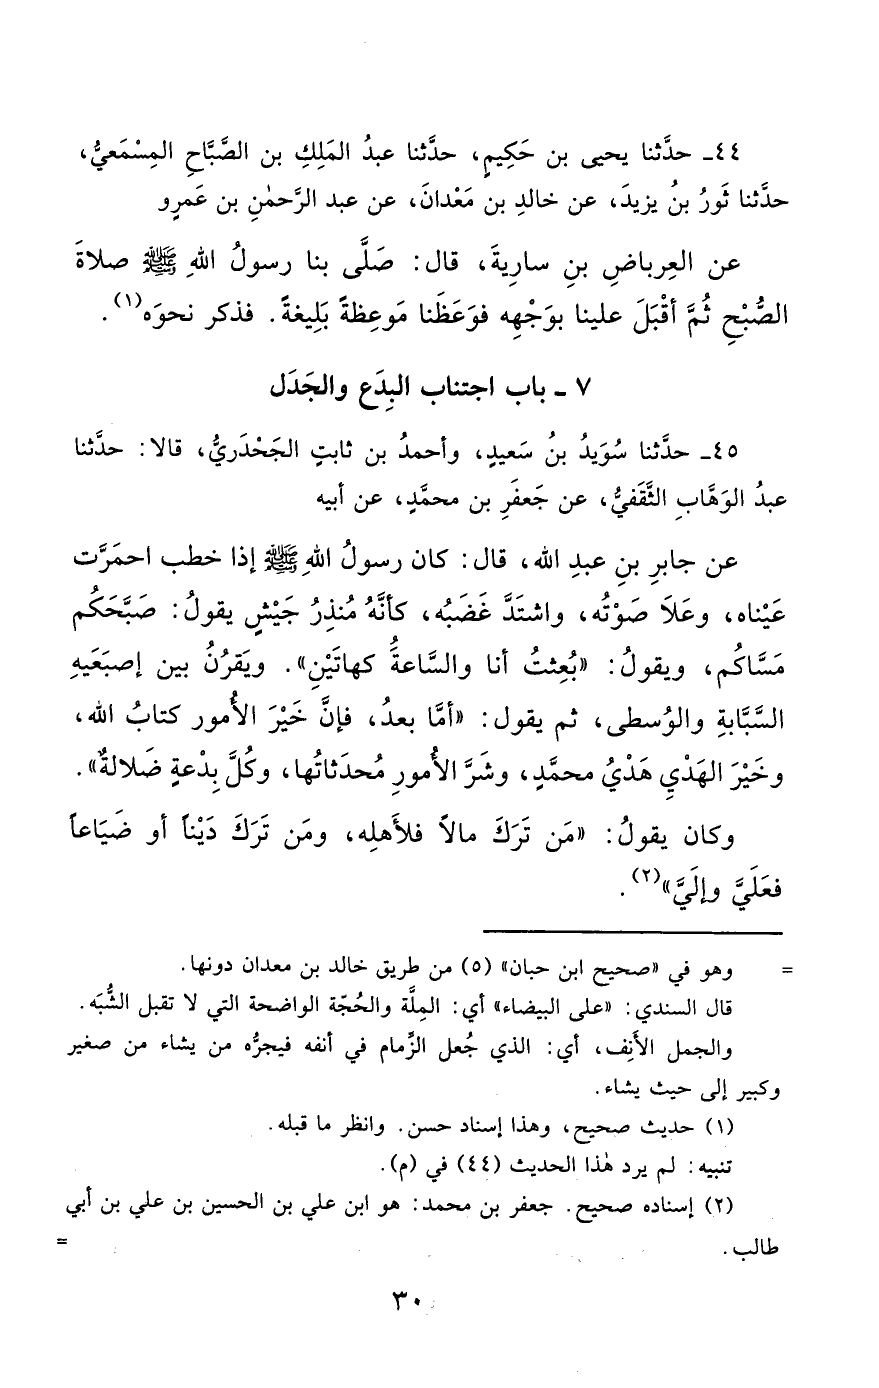 ٤٤ـ حدَّثنا يحيى بن حَكِيمٍ، حدَّثنا عبدُ المَلِكِ بن الصَّبَّاحِ المِسْمَعيُّ،
حدَّثنا ثَورُ بنُ يزيدَ، عن خالدِ بن مَعْدانَ، عن عبد الرَّحمٰنِ بن عَمرٍو
عن العِرباضِ بنِ سارِيةَ، قال: صَلَّى بنا رسولُ اللهِ ﷺ صلاةَ
الصُّبْحِ ثُمَّ أقْبَلَ علينا بوَجْهِه فوَعَظَنا مَوعِظةً بَلِيغةً. فذكر نحوَه(١).
٧ ـ باب اجتناب البِدَع والجَدَل
٤٥ـ حدَّثنا سُوَيدُ بنُ سَعيدٍ، وأحمدُ بن ثابتٍ الجَحْدَريُّ، قالا: حدَّثنا
عبدُ الوَهَّابِ الثَّقَفيُّ، عن جَعفَرِ بن محمَّدٍ، عن أبيه
عن جابرِ بنِ عبدِ الله، قال: كان رسولُ اللهِ ﷺ إذا خطب احمَرَّت
عَيْناه، وعَلَا صَوْتُه، واشتَدَّ غَضَبُه، كأنَّهُ مُنذِرُ جَيْشٍ يقولُ: صَبَّحَكُم
مَسَّاكُم، ويقولُ: «بُعِثتُ أنا والسَّاعةَُ كهاتَيْنِ». ويَقرُنُ بين إصبَعَيهِ
السَّبَّابةِ والوُسطى، ثم يقول: «أمَّا بعدُ، فإنَّ خَيْرَ الأُمور كتابُ الله،
وخَيْرَ الهَدْيِ هَدْيُ محمَّدٍ، وشَرَّ الأُمورِ مُحدَثاتُها، وكُلَّ بِدْعةٍ ضَلالةٌ».
وكان يقولُ: «مَن تَرَكَ مالاً فلأَهلِه، ومَن تَرَكَ دَيْناً أو ضَيَاعاً
فعَلَيَّ وإلَيَّ»(٢).
= وهو في «صحيح ابن حبان» (٥) من طريق خالد بن معدان دونها.
قال السندي: «على البيضاء» أي: المِلَّة والحُجّة الواضحة التي لا تقبل الشُّبَه.
والجمل الأَنِف، أي: الذي جُعل الزِّمام في أنفه فيجرُّه من يشاء من صغير
وكبير إلى حيث يشاء.
(١) حديث صحيح، وهذا إسناد حسن. وانظر ما قبله.
تنبيه: لم يرد هٰذا الحديث (٤٤) في (م).
(٢) إسناده صحيح. جعفر بن محمد: هو ابن علي بن الحسين بن علي بن أبي
طالب. =
٣٠